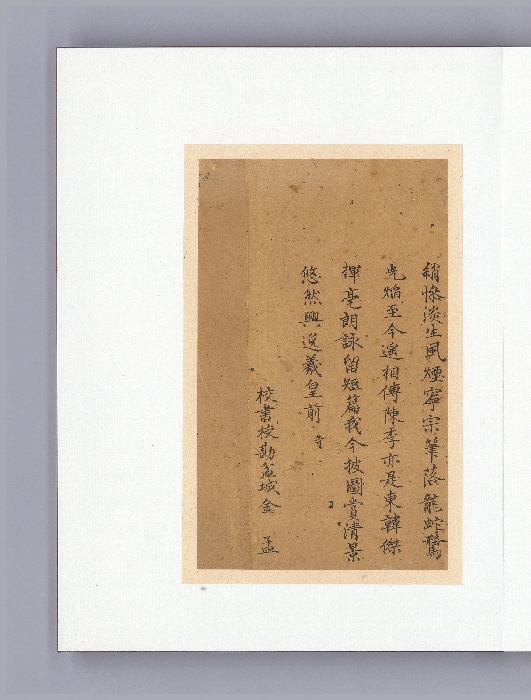 綃慘淡生風煙寧宗筆落龍蛇驚
光焰至今遙相傳陳李亦是東韓傑
揮毫朗詠留短篇我今披圖賞清景
悠然興逸羲皇前
校書校勘盆城金 孟